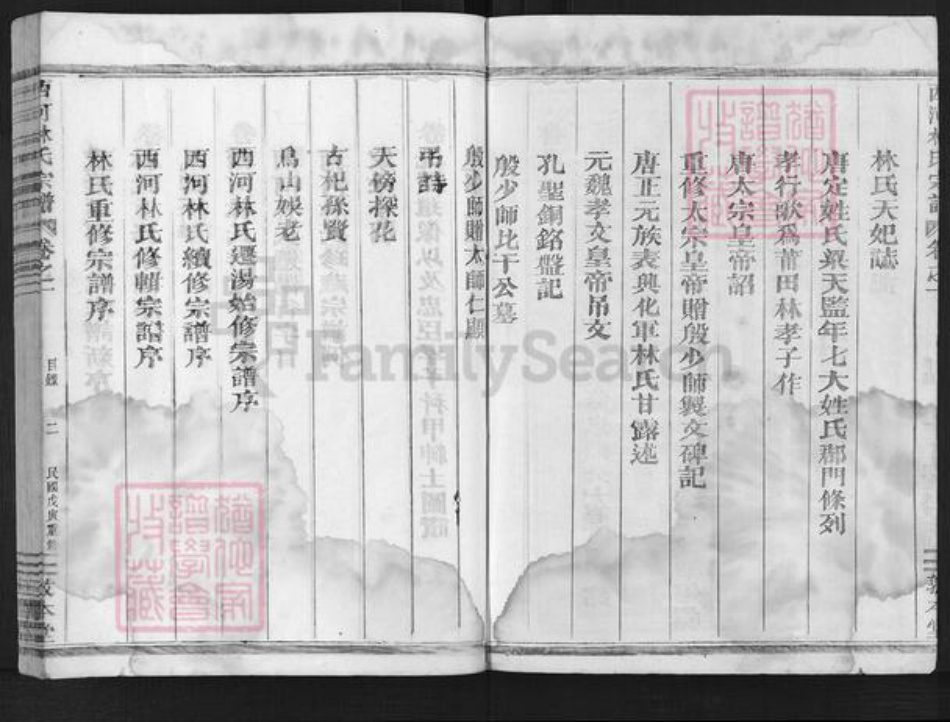 林氏天妃誌
唐定姓氏梁天監年七大姓氏郡門條列
孝行歌為莆田林孝子作
唐太宗皇帝詔
重修太宗皇帝贈殷少師製文碑記
唐正元族表興化軍林氏甘露述
元魏孝文皇帝吊文
孔聖銅銘盤記
殷少師比干公墓
殷少師贈太師仁顯
吊詩
天榜探花
古杞孫賢
烏山娛老
西河林氏遷湯始修宗譜序
西河林氏續修宗譜序
西河林氏修輯宗譜序
林氏重修宗譜序
西河林氏宗譜 卷之一
目錄
二
民國戊寅
敦本堂
FamilySearch